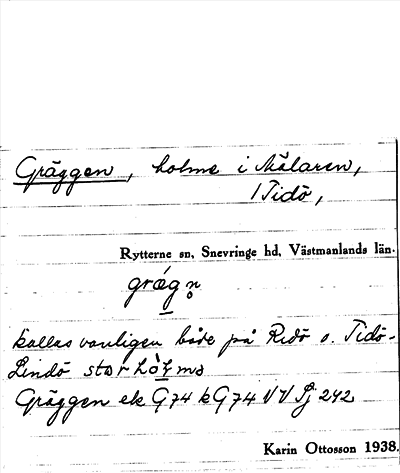 Gräggen, holme i Mälaren,
1 Tidö,
Rytterne sn, Snevringe hd, Västmanlands län.
grǽgn̥
kallas vanligen både på Ridö o. Tidö-
Lindö stor
Gräggen ek G74 k G74 VV Sj 242
Karin Ottosson 1938.